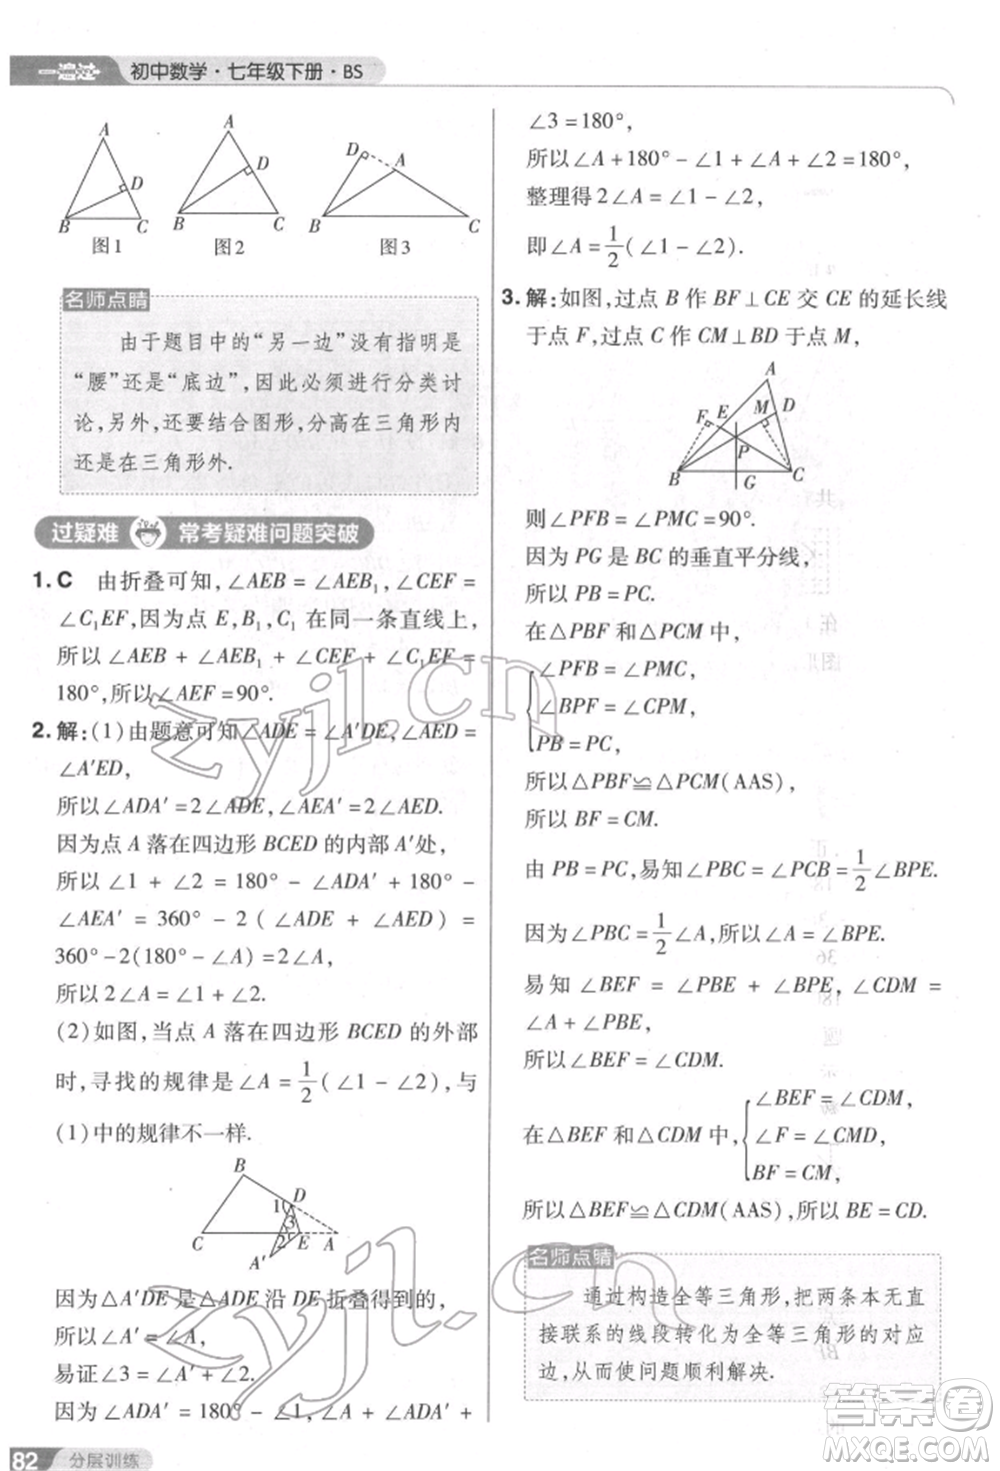 一遍过 初中数学·七年级下册·BS
A
D
B
C
图1
A
D
B
C
图2
D
A
B
C
图3
名师点睛
由于题目中的“另一边”没有指明是
“腰”还是“底边”,因此必须进行分类讨
论,另外,还要结合图形,分高在三角形内
还是在三角形外.
过疑难 常考疑难问题突破
1. C 由折叠可知,∠AEB = ∠AEB₁,∠CEF =
∠C₁EF,因为点 E,B₁,C₁ 在同一条直线上,
所以 ∠AEB + ∠AEB₁ + ∠CEF + ∠C₁EF =
180°,所以∠AEF = 90°.
2. 解:(1)由题意可知∠ADE = ∠A′DE,∠AED =
∠A′ED,
所以∠ADA′ = 2∠ADE,∠AEA′ = 2∠AED.
因为点 A 落在四边形 BCED 的内部 A′处,
所以 ∠1 + ∠2 = 180° - ∠ADA′ + 180° -
∠AEA′ = 360° - 2(∠ADE + ∠AED) =
360° - 2(180° - ∠A) = 2∠A,
所以 2∠A = ∠1 + ∠2.
(2)如图,当点 A 落在四边形 BCED 的外部
时,寻找的规律是∠A = 1/2(∠1 - ∠2),与
(1)中的规律不一样.
B
D
1
3
C
2
E
A
A′
因为△A′DE 是△ADE 沿 DE 折叠得到的,
所以∠A′ = ∠A,
易证∠3 = ∠A′ + ∠2,
因为 ∠ADA′ = 180° - ∠1,∠A + ∠ADA′ +
∠3 = 180°,
所以∠A + 180° - ∠1 + ∠A + ∠2 = 180°,
整理得 2∠A = ∠1 - ∠2,
即∠A = 1/2(∠1 - ∠2).
3. 解:如图,过点 B 作 BF⊥CE 交 CE 的延长线
于点 F,过点 C 作 CM⊥BD 于点 M,
A
F
E
M
D
P
B
G
C
则∠PFB = ∠PMC = 90°.
因为 PG 是 BC 的垂直平分线,
所以 PB = PC.
在△PBF 和△PCM 中,
∠PFB = ∠PMC,
∠BPF = ∠CPM,
PB = PC,
所以△PBF≌△PCM(AAS),
所以 BF = CM.
由 PB = PC,易知∠PBC = ∠PCB = 1/2∠BPE.
因为∠PBC = 1/2∠A,所以∠A = ∠BPE.
易知 ∠BEF = ∠PBE + ∠BPE,∠CDM =
∠A + ∠PBE,
所以∠BEF = ∠CDM.
在△BEF 和△CDM 中,
∠BEF = ∠CDM,
∠F = ∠CMD,
BF = CM,
所以△BEF≌△CDM(AAS),所以 BE = CD.
名师点睛
通过构造全等三角形,把两条本无直
接联系的线段转化为全等三角形的对应
边,从而使问题顺利解决.
82 分层训练
zyjl.cn
答案圈
MXQE.COM